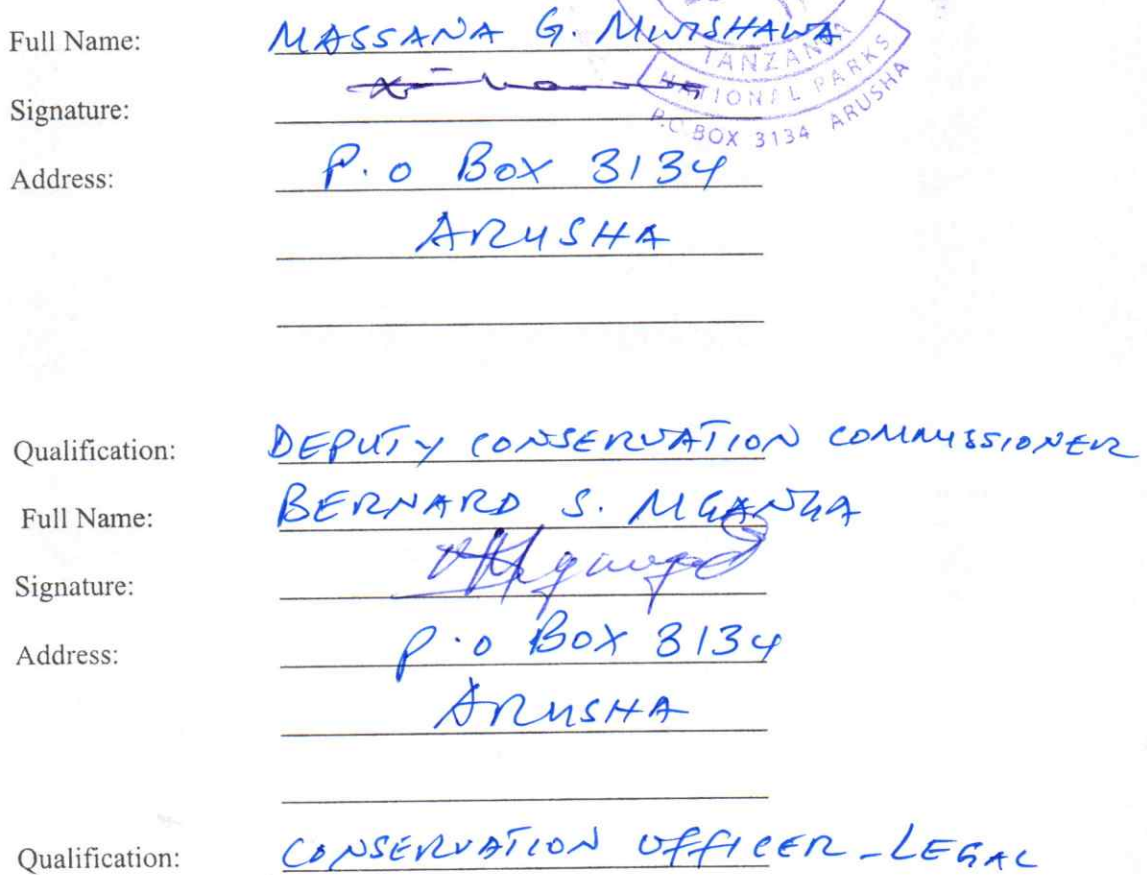 Full Name: MASSANA G. MWISHAWA
TANZANIA
NATIONAL PARKS
P.O BOX 3134 ARUSHA
Signature:
Address: P.O BOX 3134
ARUSHA
Qualification: DEPUTY CONSERVATION COMMISSIONER
Full Name: BERNARD S. MGANGA
Signature:
Address: P.O BOX 3134
ARUSHA
Qualification: CONSERVATION OFFICER - LEGAL